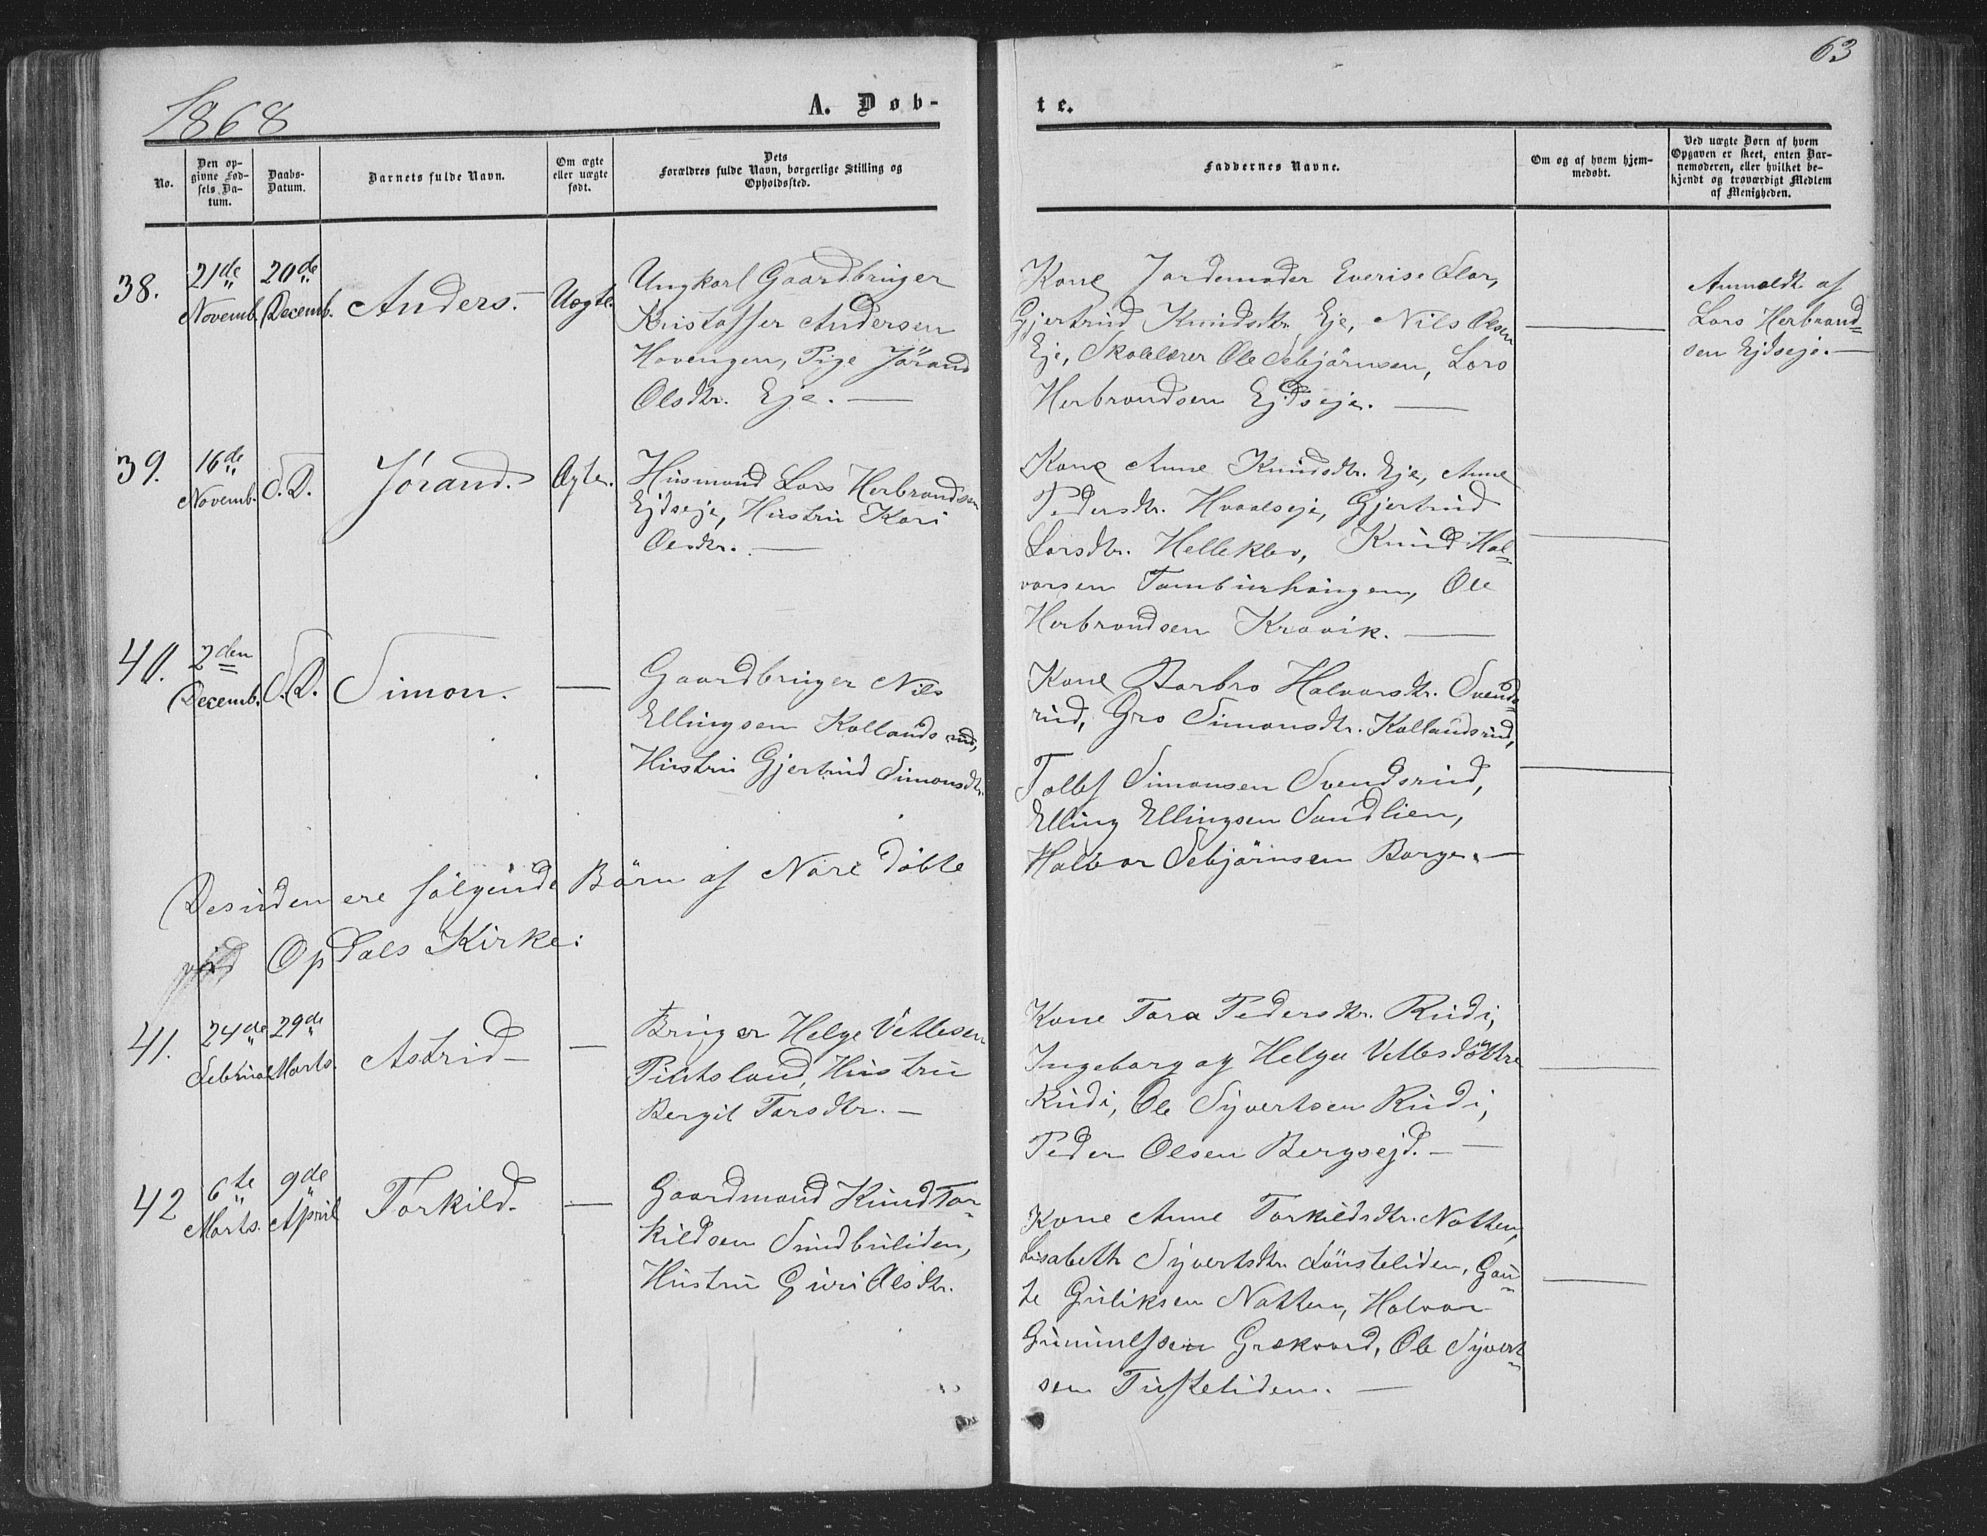 63
1868
A. Døb-
te.
No.
Den op-
givne Fød-
sels Da-
tum.
Daabs-
Datum.
Barnets fulde Navn.
Om ægte
eller uægte
født.
Dets
Forældres fulde Navn, borgerlige Stilling og
Opholdssted.
Faddernes Navne.
Om og af hvem hjem-
medøbt.
Ved uægte Børn af hvem
Opgaven er skeet, enten Bar-
nemoderen, eller hvilket be-
kjendt og troværdigt Medlem
af Menigheden.
38.
21de
Novemb.
20de
Decemb.
Anders.
Uægte.
Ungkarl Gaardbruger
Kristoffer Andersen
Hovengen, Pige Jörand
Olsdtr. Eje.
Kone Jordemoder Everise Flor,
Gjertrud Knudsdtr. Eje, Nils Olsen
Eje, Skolelærer Ole Sebjörnsen, Lars
Herbrandsen Ejdseje.
Anmeldt af
Lars Herbrand=
sen Ejdseje.
39.
16de
Novemb.
S.D.
Jörand.
Ægte.
Husmand Lars Herbrandsen
Ejdseje, Hustru Kari
Olsdtr.
Kone Anne Knudsdtr. Eje, Anne
Pedersdtr. Hvaalseje, Gjertrud
Larsdtr. Helleklev, Knud Hal=
vorsen Tamburhaugen, Ole
Herbrandsen Kravik.
40.
2den
Decemb.
S.D.
Simon.
Gaardbruger Nils
Ellingsen Kollandsrud,
Hustru Gjertrud Simonsdtr.
Kone Barbro Halvorsdtr. Svends=
rud, Gro Simonsdtr. Kollandsrud,
Tollef Simonsen Svendsrud,
Elling Ellingsen Sandlien,
Halvor Sebjörnsen Borge.
Desuden ere fölgende Börn af Nore döbte
ved Opdals Kirke:
41.
24de
Februar
29de
Marts.
Astrid
Bruger Helge Vetlesen
Hustru
Bergit Torsdtr.
Kone Tora Pedersdtr. Rudi,
Ingeborg og Helga Vetlesdöttre
Rudi, Ole Syvertsen Rudi,
Peder Olsen Bergsejd.
42
6te
Marts.
9de
April
Torkild.
Gaardmand Knud Tor-
kildsen Sundbuliden,
Hustru Guri Olsdtr.
Kone Anne Torkildsdtr. Natten,
Lisabeth Syvertsdtr. Lönsteliden, Gun=
te Guliksen Natten, Halvor
Gunnulfsen Ole Syvert=
sen Tufteliden.